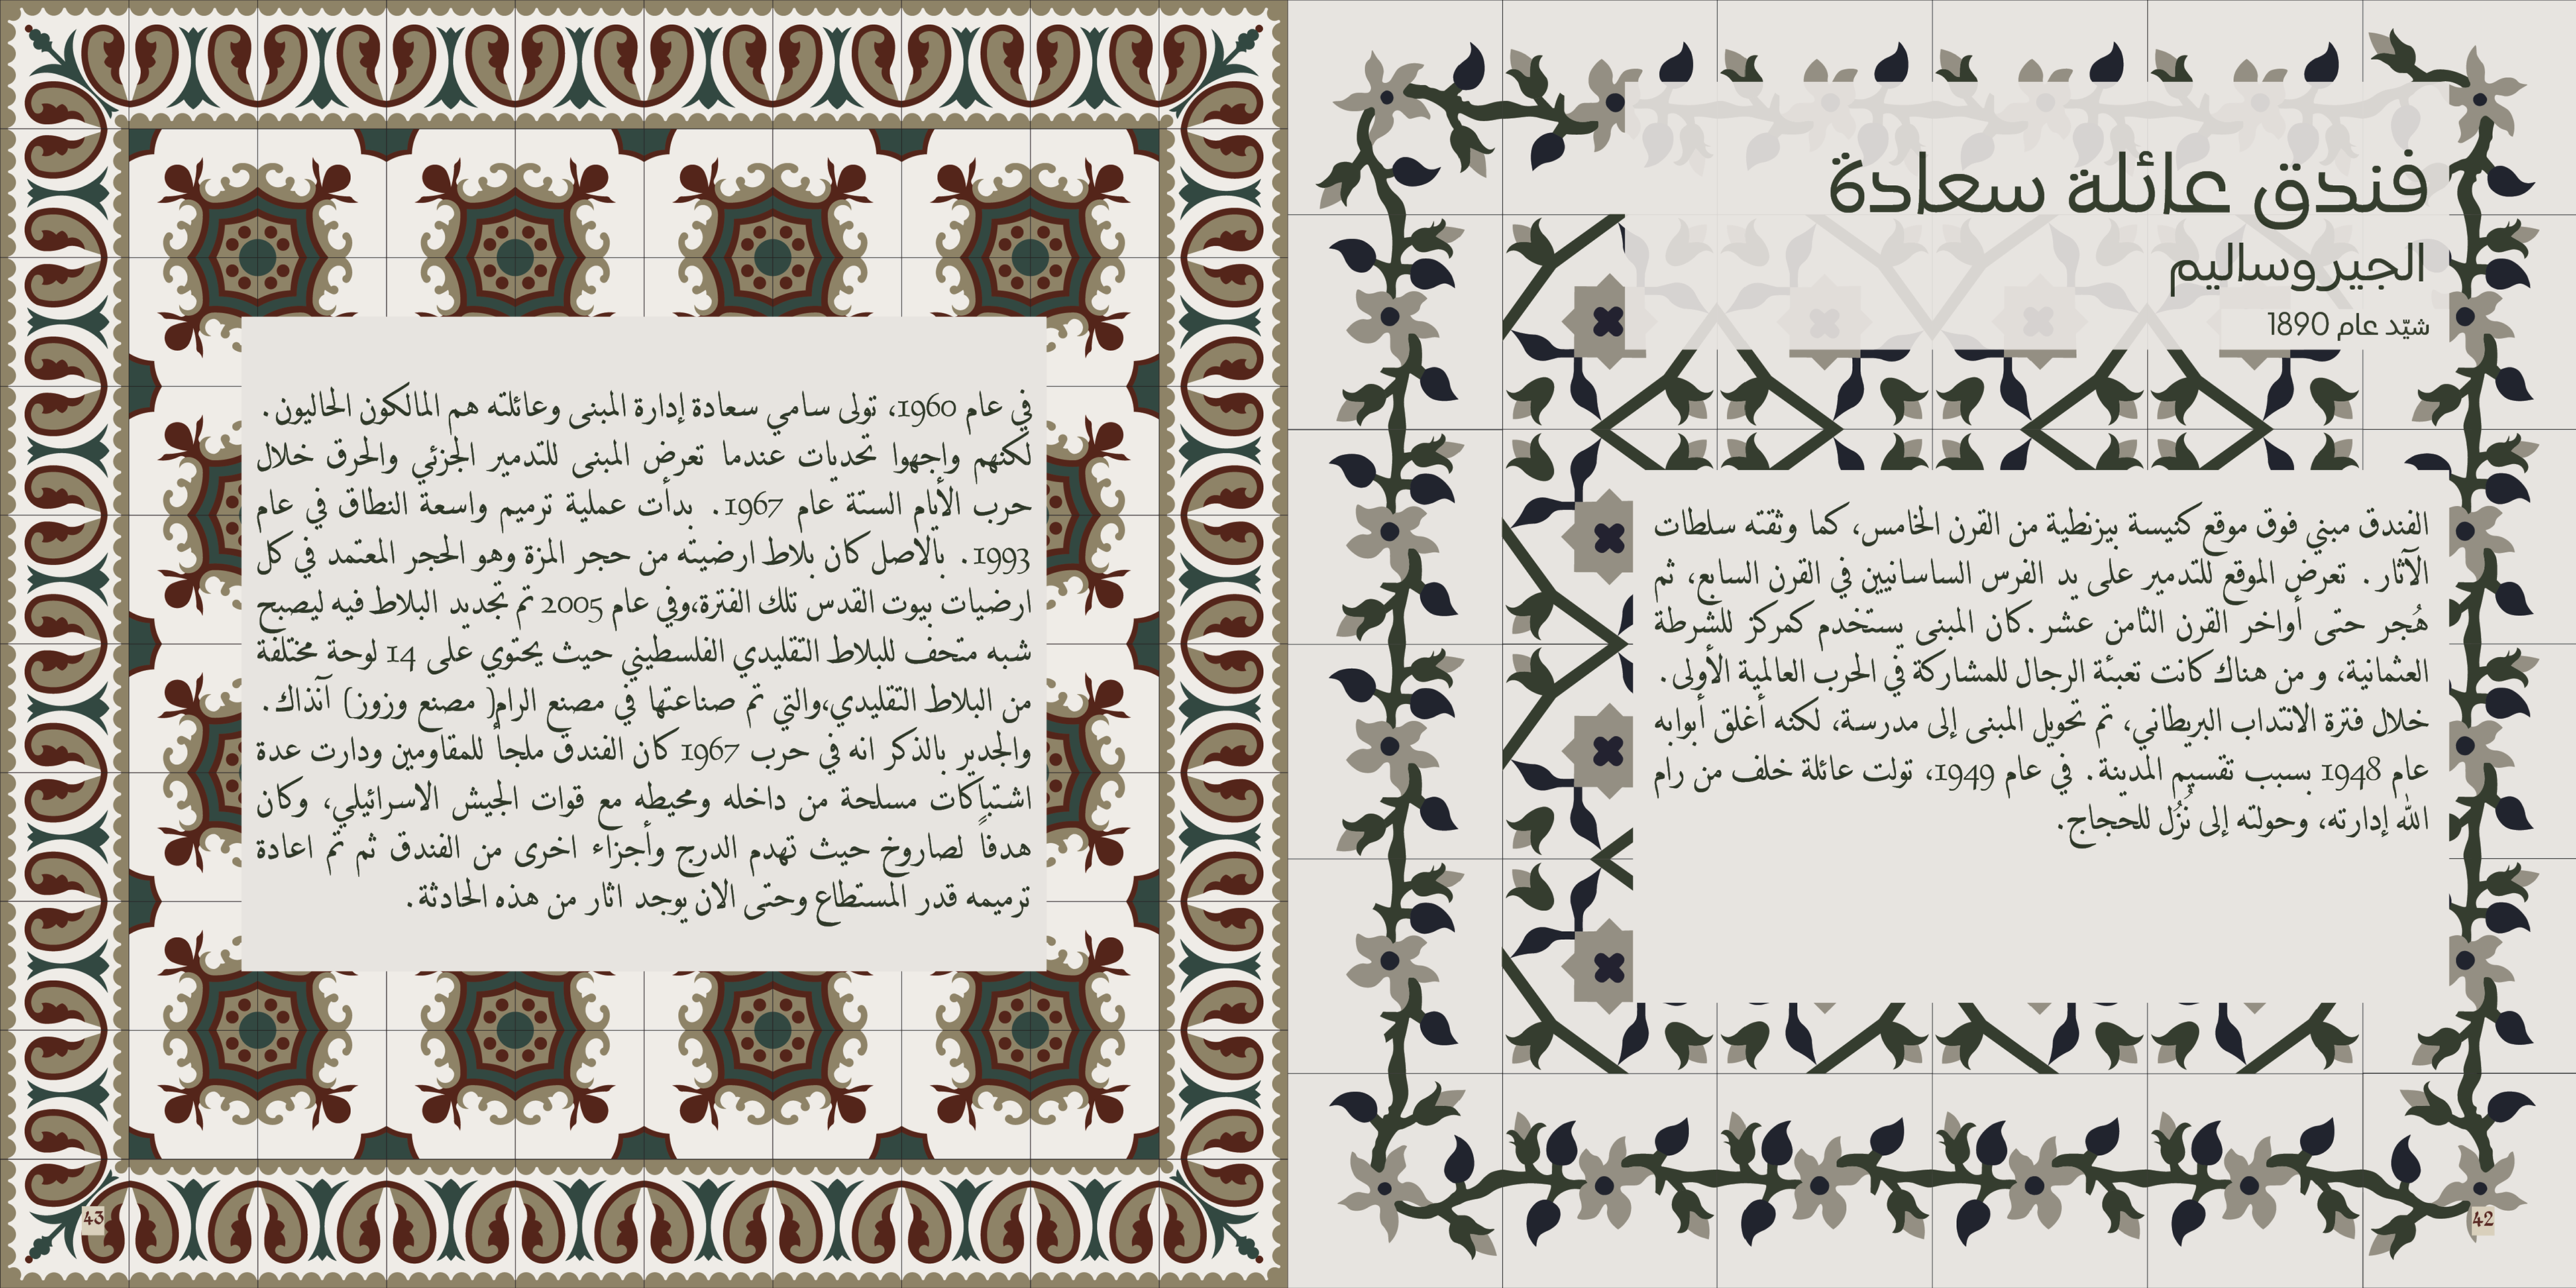 فندق عائلة سعادة
الجيروساليم
شيّد عام 1890
الفندق مبني فوق موقع كنيسة بيزنطية من القرن الخامس، كما وثقته سلطات
الآثار. تعرض الموقع للتدمير على يد الفرس الساسانيين في القرن السابع، ثم
هُجر حتى أواخر القرن الثامن عشر.كان المبنى يستخدم كمركز للشرطة
العثمانية، و من هناك كانت تعبئة الرجال للمشاركة في الحرب العالمية الأولى.
خلال فترة الانتداب البريطاني، تم تحويل المبنى إلى مدرسة، لكنه أغلق أبوابه
عام 1948 بسبب تقسيم المدينة. في عام 1949، تولت عائلة خلف من رام
الله إدارته، وحولته إلى نُزُل للحجاج.
42
في عام 1960، تولى سامي سعادة إدارة المبنى وعائلته هم المالكون الحاليون.
لكنهم واجهوا تحديات عندما تعرض المبنى للتدمير الجزئي والحرق خلال
حرب الأيام الستة عام 1967. بدأت عملية ترميم واسعة النطاق في عام
1993. بالاصل كان بلاط ارضيته من حجر المزة وهو الحجر المعتمد في كل
ارضيات بيوت القدس تلك الفترة،وفي عام 2005 تم تجديد البلاط فيه ليصبح
شبه متحف للبلاط التقليدي الفلسطيني حيث يحتوي على 14 لوحة مختلفة
من البلاط التقليدي،والتي تم صناعتها في مصنع الرام( مصنع وزوز) آنذاك.
والجدير بالذكر انه في حرب 1967 كان الفندق ملجأً للمقاومين ودارت عدة
اشتباكات مسلحة من داخله ومحيطه مع قوات الجيش الاسرائيلي، وكان
هدفاً لصاروخ حيث تهدم الدرج وأجزاء اخرى من الفندق ثم تم اعادة
ترميمه قدر المستطاع وحتى الان يوجد اثار من هذه الحادثة.
43